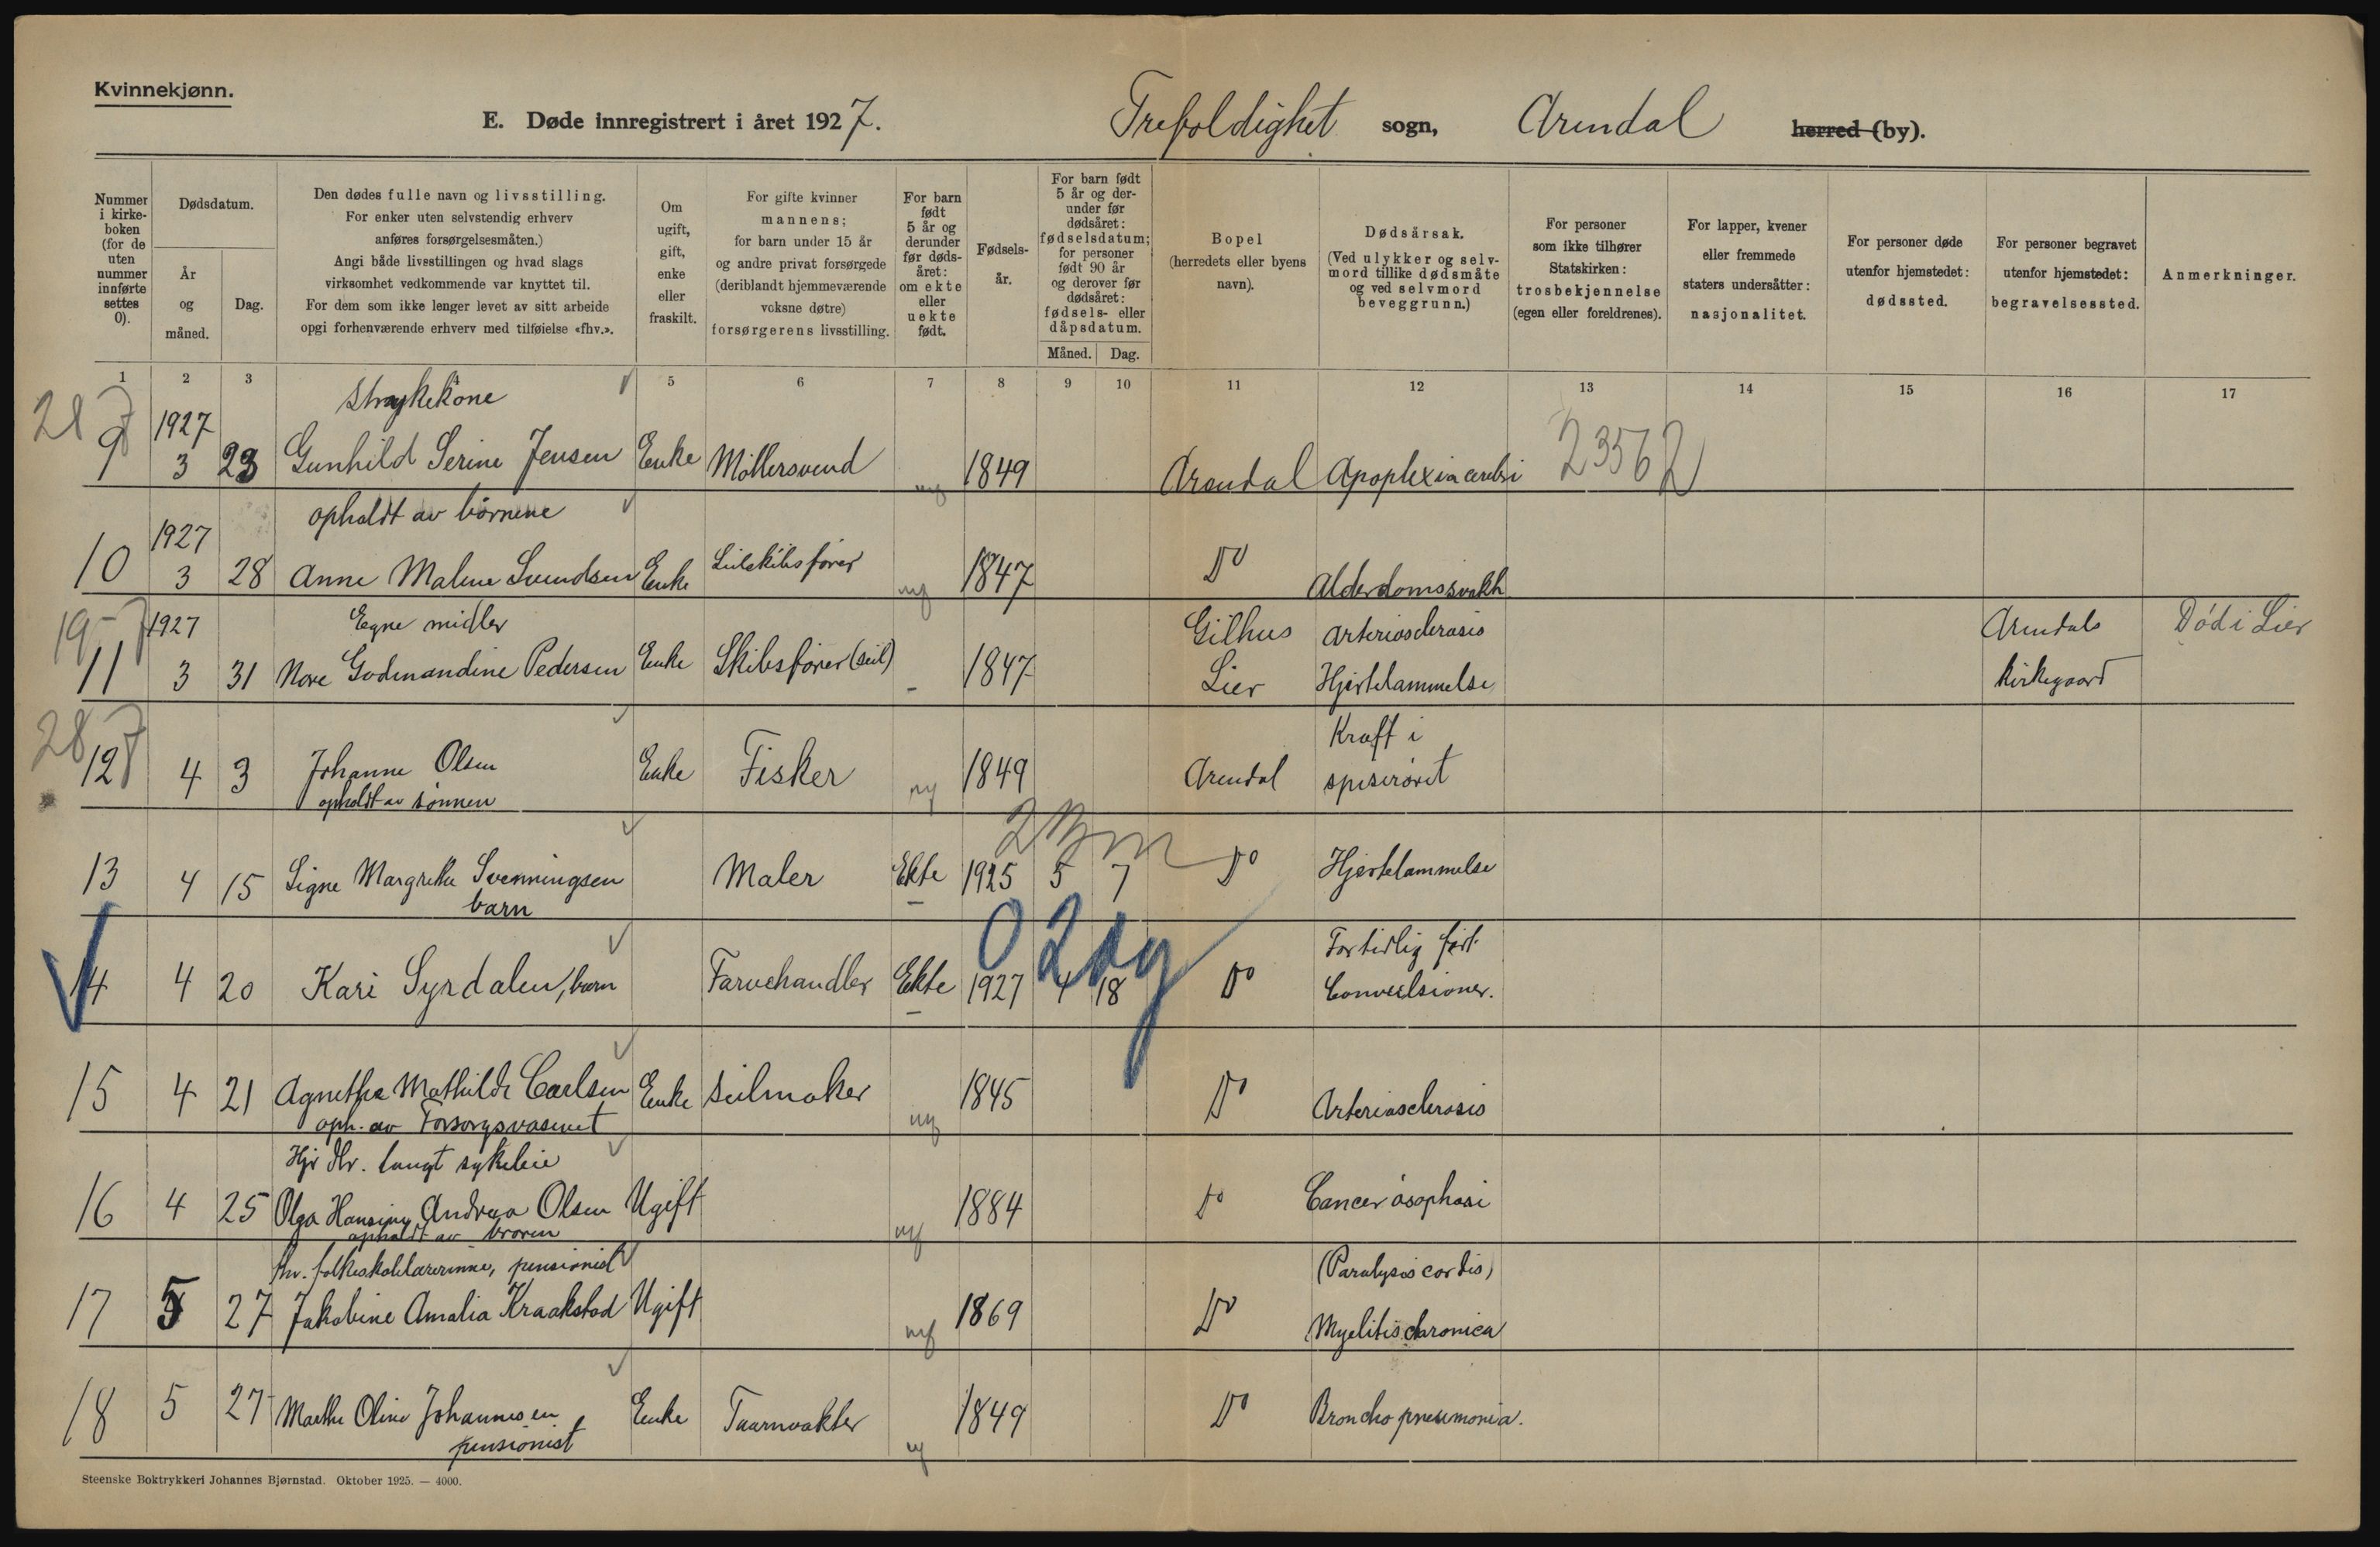 Kvinnekjønn.
E. Døde innregistrert i året 1927. Trefoldighet sogn, Arendal herred (by).
Nummer i kirkeboken (for de uten nummer innførte settes 0).
Dødsdatum.
År og måned.
Dag.
Den dødes fulle navn og livsstilling.
For enker uten selvstendig erhverv
anføres forsørgelsesmåten.)
Angi både livsstillingen og hvad slags
virksomhet vedkommende var knyttet til.
For dem som ikke lenger levet av sitt arbeide
opgi forhenværende erhverv med tilføielse «fhv.».
Om ugift, gift, enke eller fraskilt.
For gifte kvinner
mannens;
for barn under 15 år
og andre privat forsørgede
(deriblandt hjemmeværende
voksne døtre)
forsørgerens livsstilling.
For barn født 5 år og derunder før dødsåret: om ekte eller uekte født.
Fødselsår.
For barn født 5 år og derunder før dødsåret: fødselsdatum; for personer født 90 år og derover før dødsåret: fødsels- eller dåpsdatum.
Måned. Dag.
Bopel
(herredets eller byens
navn).
Dødsårsak.
(Ved ulykker og selvmord tillike dødsmåte og ved selvmord beveggrunn.)
For personer
som ikke tilhører
Statskirken:
trosbekjennelse
(egen eller foreldrenes).
For lapper, kvener
eller fremmede
staters undersåtter:
nasjonalitet.
For personer døde
utenfor hjemstedet:
dødssted.
For personer begravet
utenfor hjemstedet:
begravelsessted.
Anmerkninger.
1 2 3 5 6 7 8 9 10 11 12 13 14 15 16 17
28 7 1927 strykekone
9 3 23 Gunhild Serine Jensen Enke Møllersvend 1849 Arendal Apoplexia cerebri 23562
1927 opholdt av børnene
10 3 28 Anne Malene Svendsen Enke Seilskibsfører ug 1847 Do Alderdomssvakh
19 7 1927 Egne midler Gilhus Arteriosclerosis Arendals Død i Lier
11 3 31 Godmandine Pedersen Enke Skibsfører (seil) - 1847 Lier Hjertelammelse kirkegaard
28 7 Kræft i
12 4 3 Johanne Olsen Enke Fisker ug 1849 Arendal spiserøret
opholdt av sønnen
13 4 15 Signe Margrethe Svenningsen Maler Ekte 1925 5 7 Do Hjertelammelse
barn
0 2 dg For tidlig født.
14 4 20 Kari Syrdalen, barn Farvehandler Ekte 1927 4 18 Do Convulsioner.
15 4 21 Agnethe Mathilde Carlsen Enke seilmaker ug 1845 Do Arteriosclerosis
oph. av Forsorgsvæsenet
Hj. dtr. langt sykeleie
16 4 25 Olga Hansine Andrea Olsen Ugift ug 1884 Do Cancer øsophasi
opholdt av broren
fhv. folkeskolelærerinne, pensionist (Paralysis cordis)
17 5 27 Jakobine Amalia Kraakstad Ugift ug 1869 Do Myelitis chronica
18 5 27 Marthe Oline Johannesen Enke Taarnvakter ug 1849 Do Broncho pneumonia.
pensionist
Steenske Boktrykkeri Johannes Bjørnstad. Oktober 1925. — 4000.